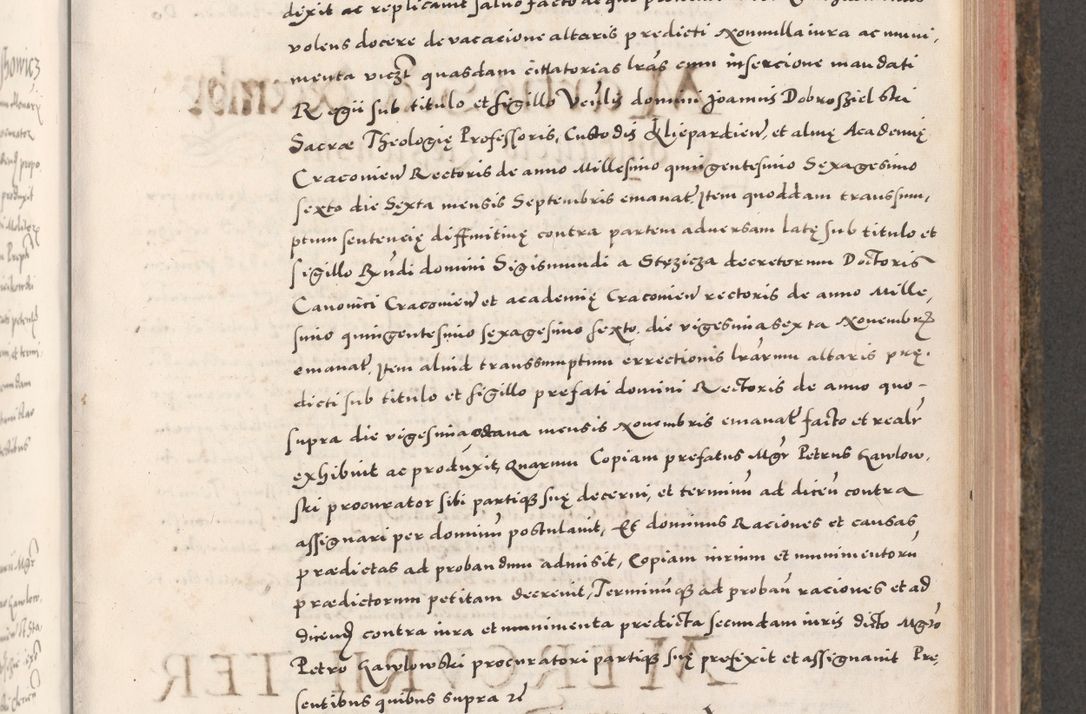 dixit ac replicavit salvo facto
volens docere de vacacione altaris predicti Nonnulla iura ac muni,
menta viczt quasdam citatorias lras cum insercione mandati
Regii sub titulo et sigillo Venlis domini Joannis Dobrosziel ski
Sacræ Theologię Professoris, Custodis Kliepardien, et almę Academię
Cracovien Rectoris de anno Millesimo quingentesimo Sexagesimo
sexto die Sexta mensis Septembris emanat. Item quoddam transsum,
ptum sentencię diffinitivę contra partem adversam latę sub titulo et
sigillo Rndi domini Sigismundi a Stęzicza decretorum Doctoris
Canonici Cracovien et academię Cracovien rectoris de anno Mille,
simo quingentesimo sexagesimo sexto, die vigesima sexta Novembrz
emanat. Item aliud transsumptum errectionis lrarum altaris prę.
dicti sub titulo et sigillo prefati domini Rectoris de anno quo-
supra die vigesima octava mensis Novembris emanat facto et realr
exhibuit ac produxit, Quarum Copiam prefatus Mgr Petrus Gawlow,
ski procurator sibi partiq3 suę decerni, et terminum ad dicen contra
assignari per dominum postulavit, Et dominus Raciones et causas
prædictas ad probandum admisit, Copiam iurium et munimentorum
prædictorum petitam decrevit, Terminumq3 ad proban raciones et ad
dicend contra iura et munimenta predicta secundam iuris dicto Mgro
Petro Gawlowski procuratori partiq3 suę prefixit et assignavit Pre,
sentibus quibus supra rc